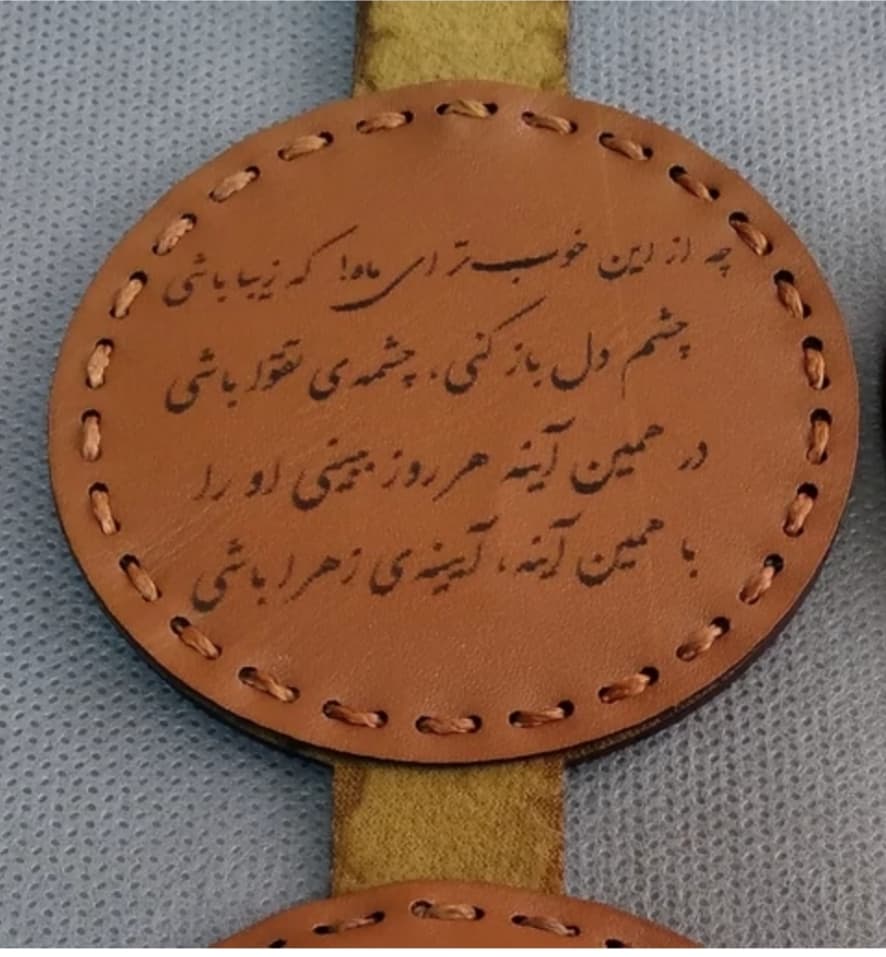 چه از این خوب‌تر ای ماه! که زیبا باشی
چشم دل باز کنی، چشمه‌ی تقوا باشی
در همین آینه هر روز ببینی او را
با همین آینه، آیینه‌ی زهرا باشی